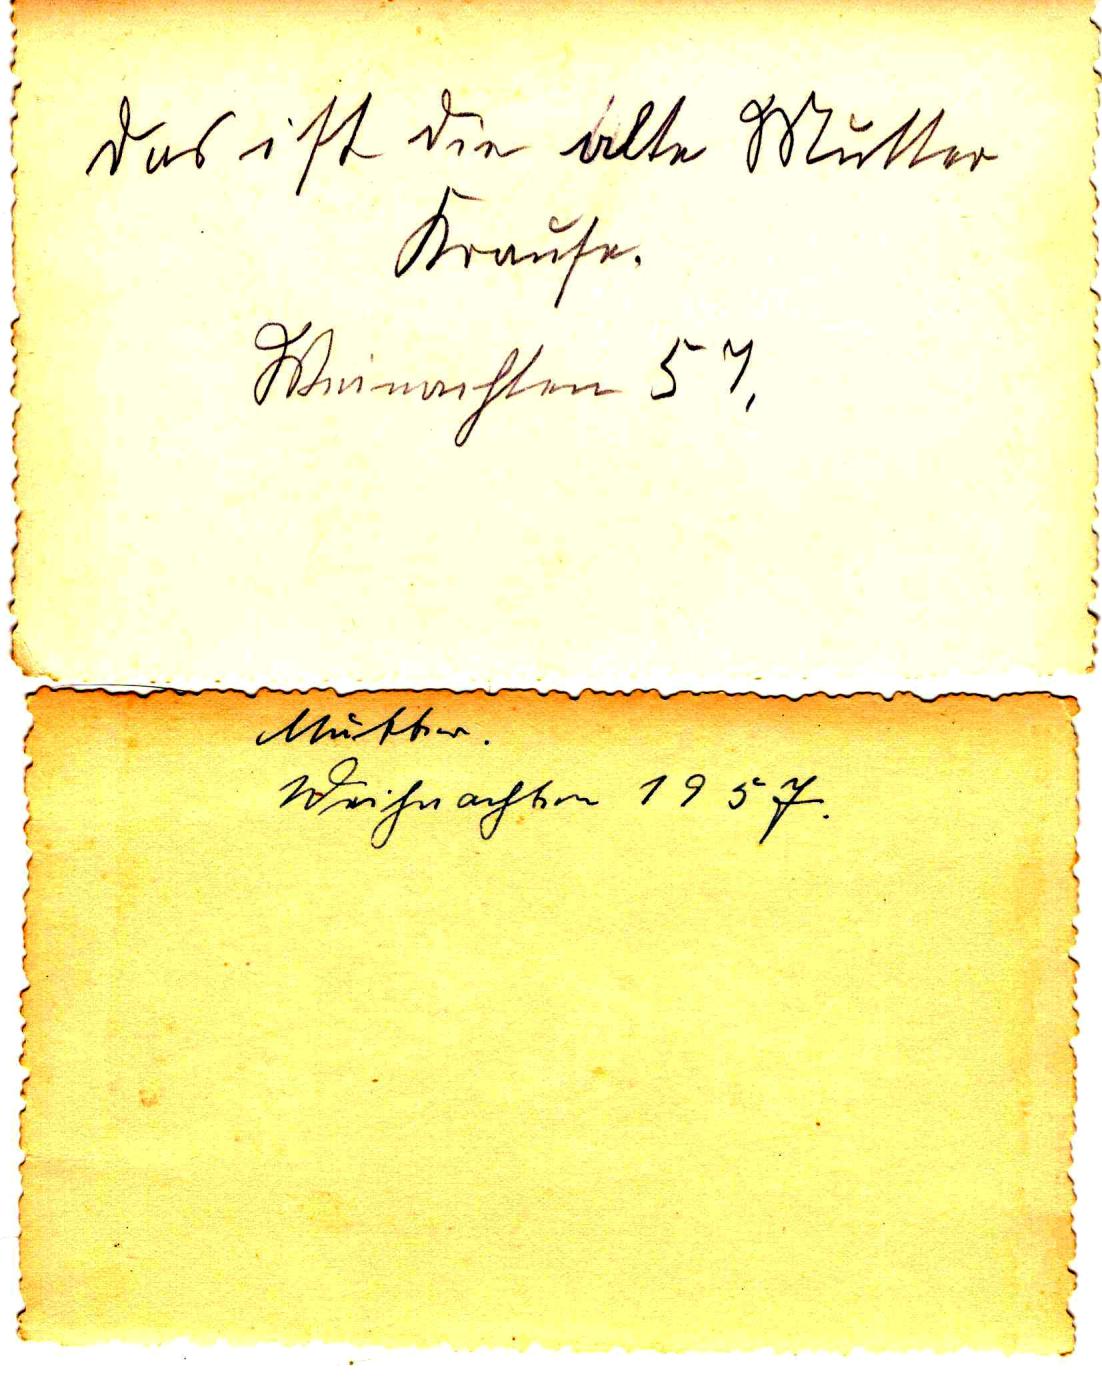 Das ist die alte Mutter
Krause.
Weinachten 57,
Mutter.
Weihnachten 1957.